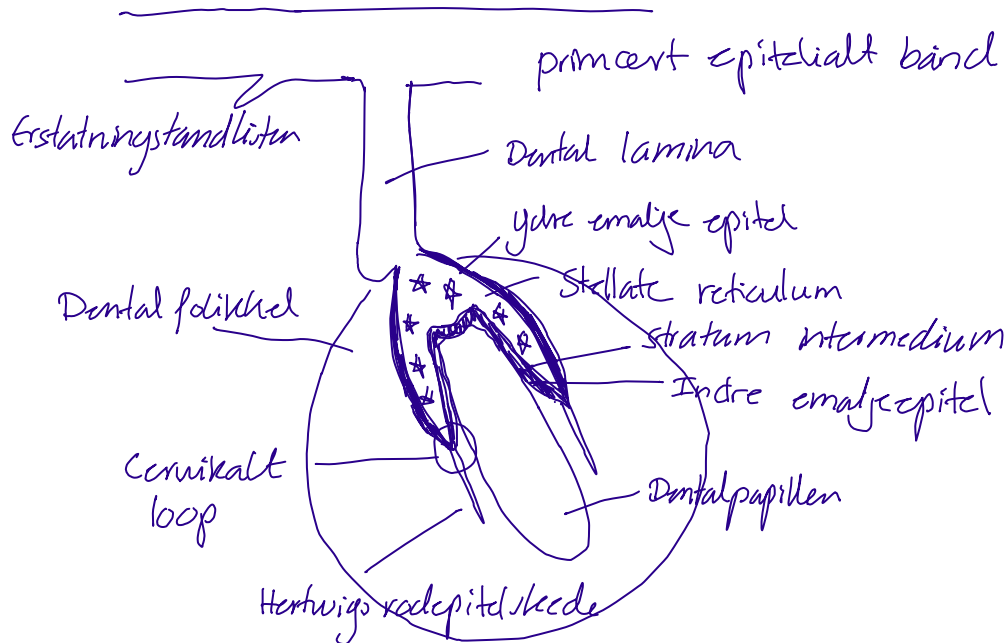 primært epitelialt bånd
Erstatningstandlisten
Dental lamina
ydre emalje epitel
Stellate reticulum
Dental folikkel
stratum intermedium
Indre emaljeepitel
Cervikalt
loop
Dentalpapillen
Hertwigs rodepitelskede